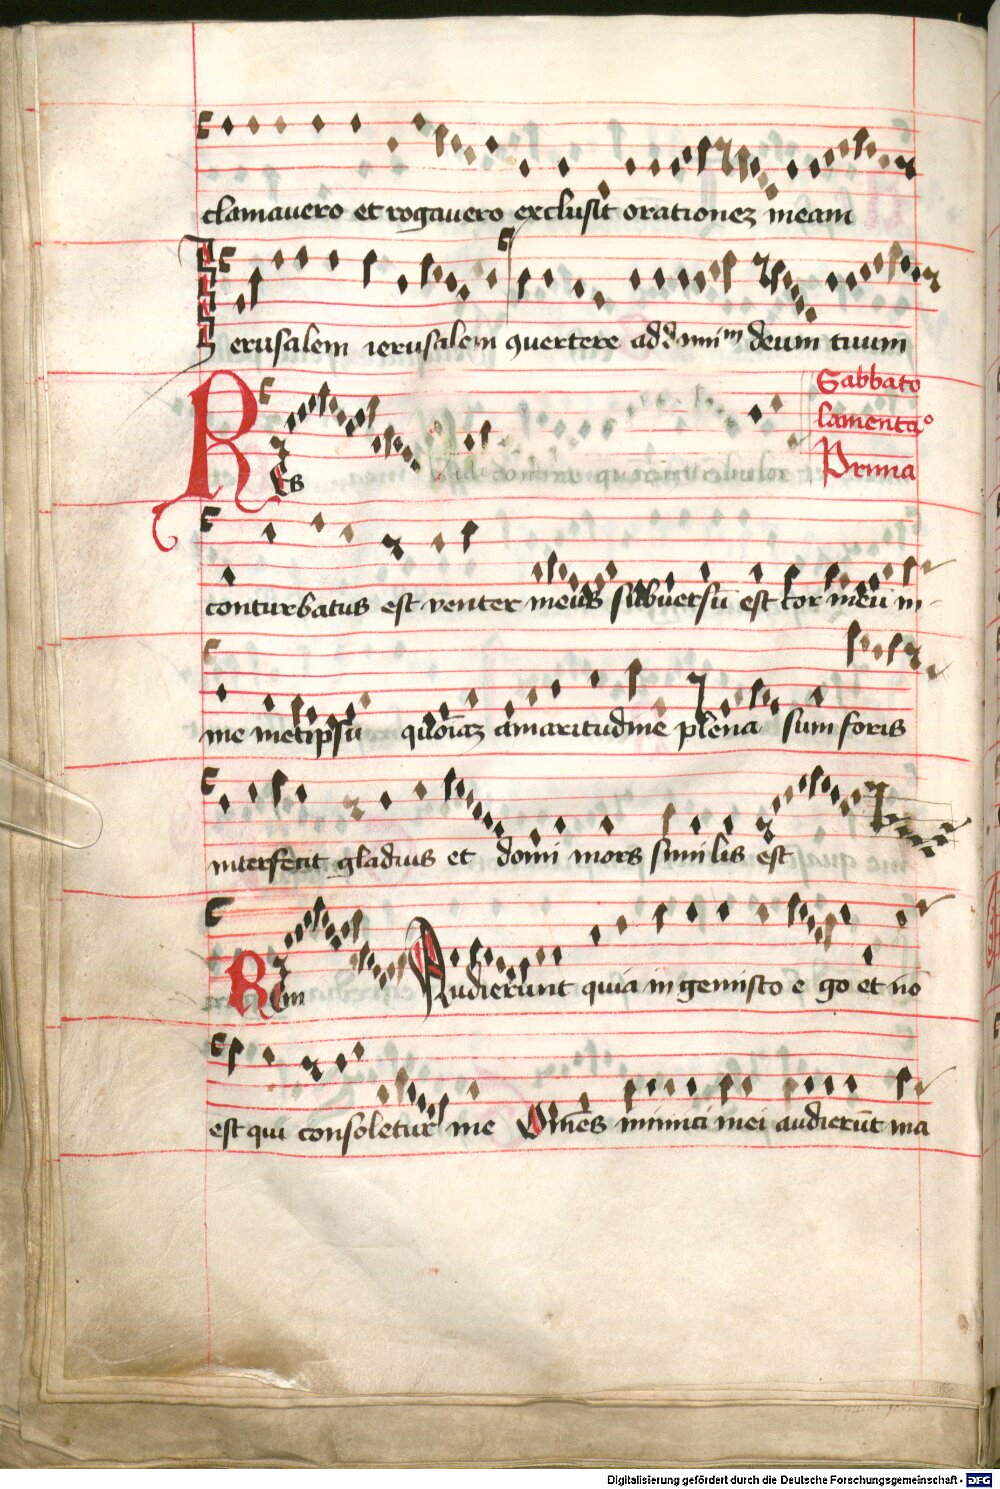 clamauero et rogauero exclusit orationez meam
Ierusalem ierusalem ꝯuertere ad domiᵐ deum tuum
Sabbato
lamentaᵒ
Prima
Res
conturbatus est venter meus subuersū est cor meū in-
me metipsū qm̄ amaritudine plena sum foris
interfecit gladius et domi mors similis est
Sim Audierunt quia ingemisco ego et nō
est qui consoletur me Om̄es inimici mei audierūt ma
Digitalisierung gefördert durch die Deutsche Forschungsgemeinschaft - DFG